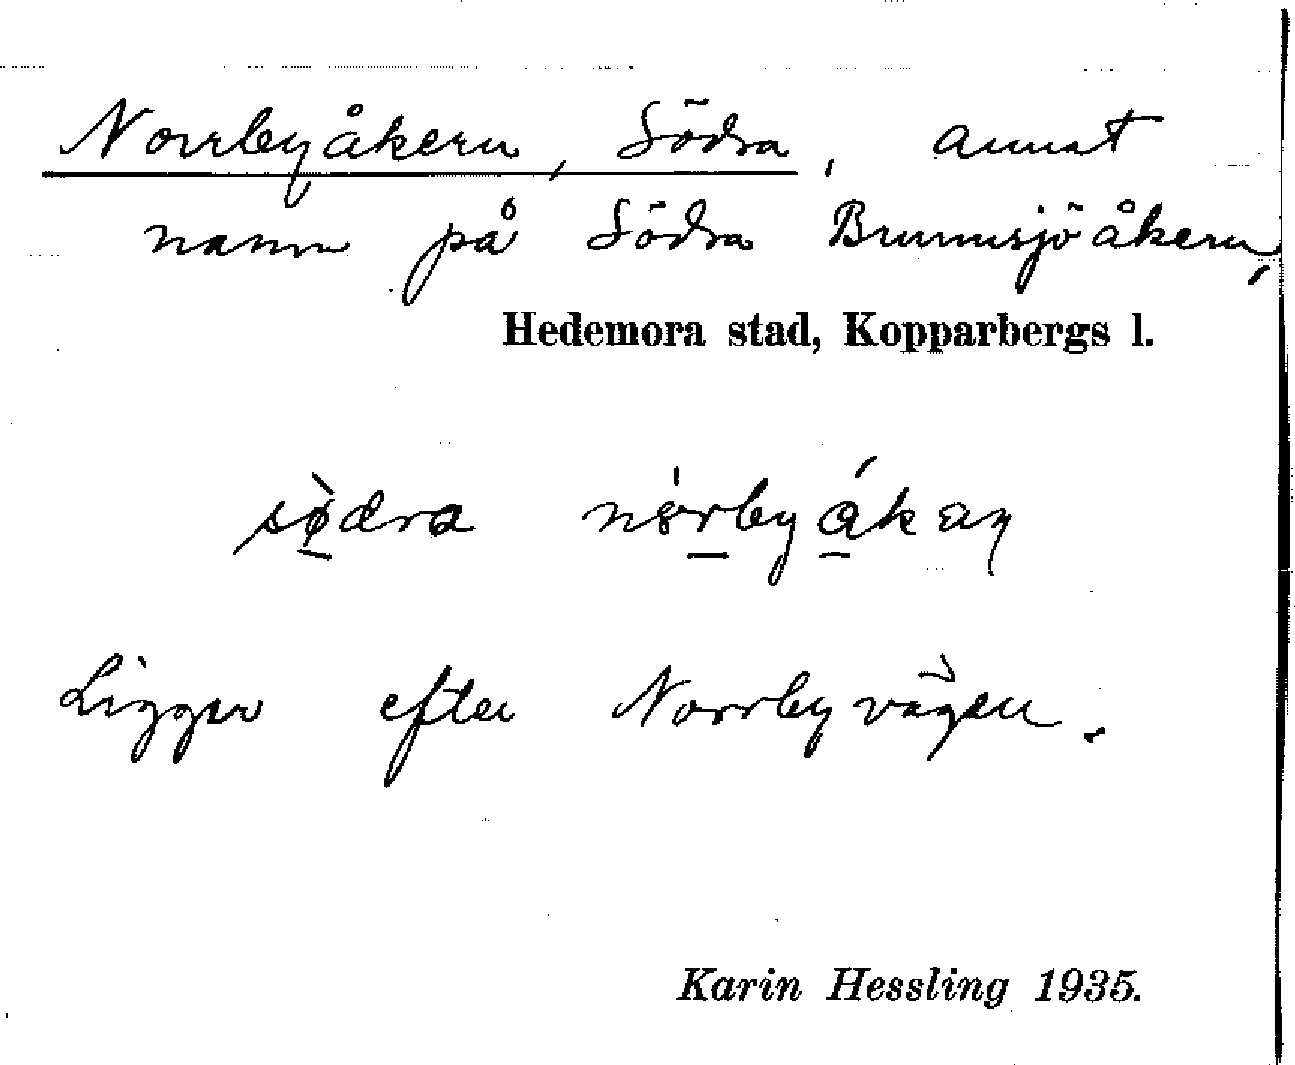 Norrbyåkern, Södra, annat
namn på Södra Brunnsjöåkern,
Hedemora stad, Kopparbergs l.
sø̀dra nórbyákaɳ
Ligger efter Norrbyvägen.
Karin Hessling 1935.